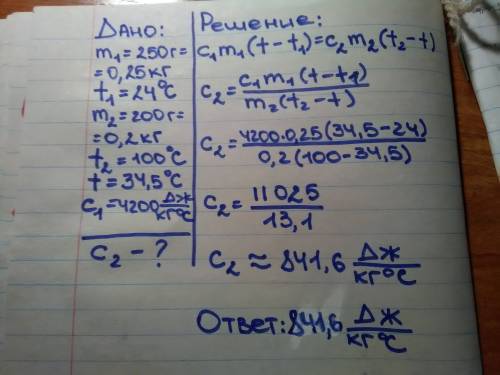 Дано:
m₁=250г=
=0,25кг
t₁=24°C
m₂=200г=
=0,2кг
t₂=100°C
t=34,5°C
c₁=4200 Дж/кг°C
c₂-?
Решение:
c₁m₁(t-t₁)=c₂m₂(t₂-t)
c₂=c₁m₁(t-t₁)/m₂(t₂-t)
c₂=4200·0,25(34,5-24)/0,2(100-34,5)
c₂=11025/13,1
c₂≈841,6 Дж/кг°C
Ответ:841,6 Дж/кг°C